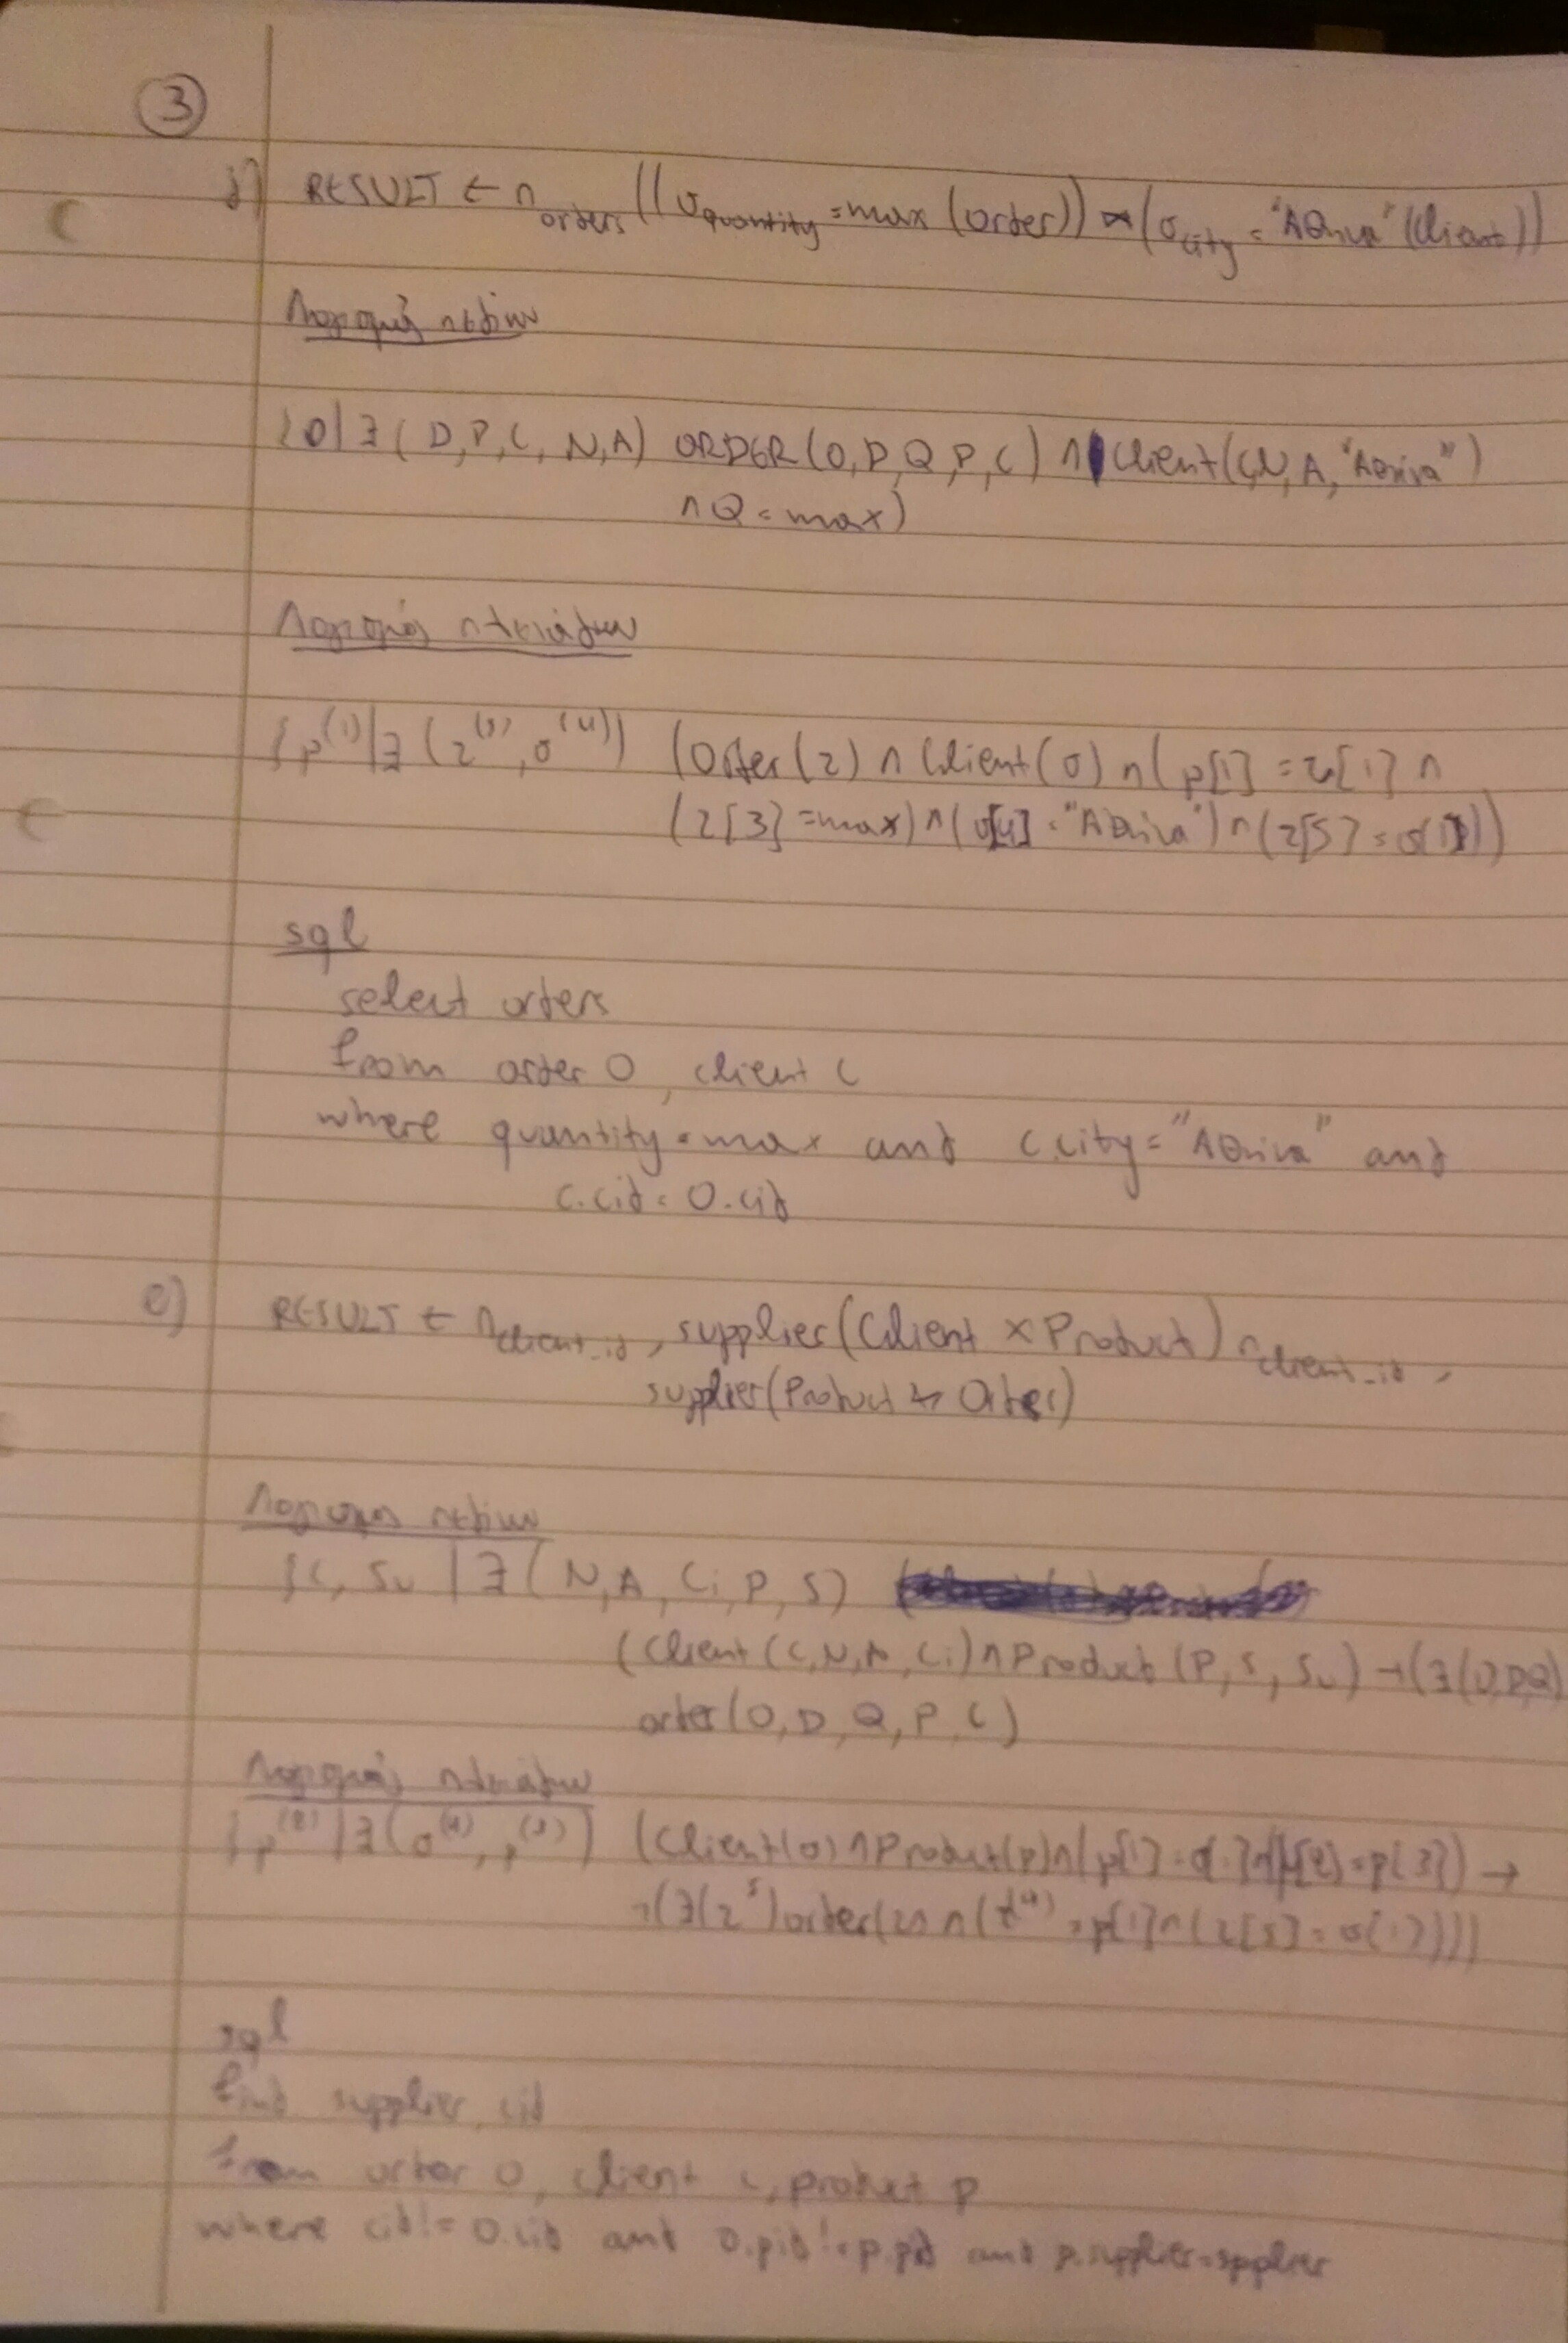 3
δ) RESULT ← π orders ((σ quantity = max (order)) ⋈ (σ city = "Αθήνα" (Client))
Λογισμός πεδίων
{O | ∃ (D, P, C, N, A) ORDER (O, D, Q, P, C) ∧ Client (C, N, A, "Αθήνα")
∧ Q = max)
Λογισμός πλειάδων
{p^(1) | ∃ (z^(5), σ^(4)) (Order (z) ∧ Client (σ) ∧ (p[1] = z[1] ∧
(z[3] = max) ∧ (σ[4] = "Αθήνα") ∧ (z[5] = σ[1]))
sql
select orders
from order O, client C
where quantity = max and c.city = "Αθήνα" and
c.cid = O.cid
e) RESULT ← π client_id, supplier (Client × Product) π client_id,
supplier (Product ⋈ Order)
Λογισμός πεδίων
{C, Su | ∃ (N, A, Ci, P, S)
(Client (C, N, A, Ci) ∧ Product (P, S, Su) → (∃ (O, D, Q)
order (O, D, Q, P, C)
Λογισμός πλειάδων
{p^(2) | ∃ (σ^(4), p^(3)) (Client (σ) ∧ Product (p) ∧ (p[1] = p[3]) →
¬(∃ (z^5) order (z) ∧ = p[1] ∧ (z[5] = σ[1]))))
sql
find supplier, cid
from order O, client c, product p
where cid != O.cid and O.pid != p.pid and p.supplier = spplier